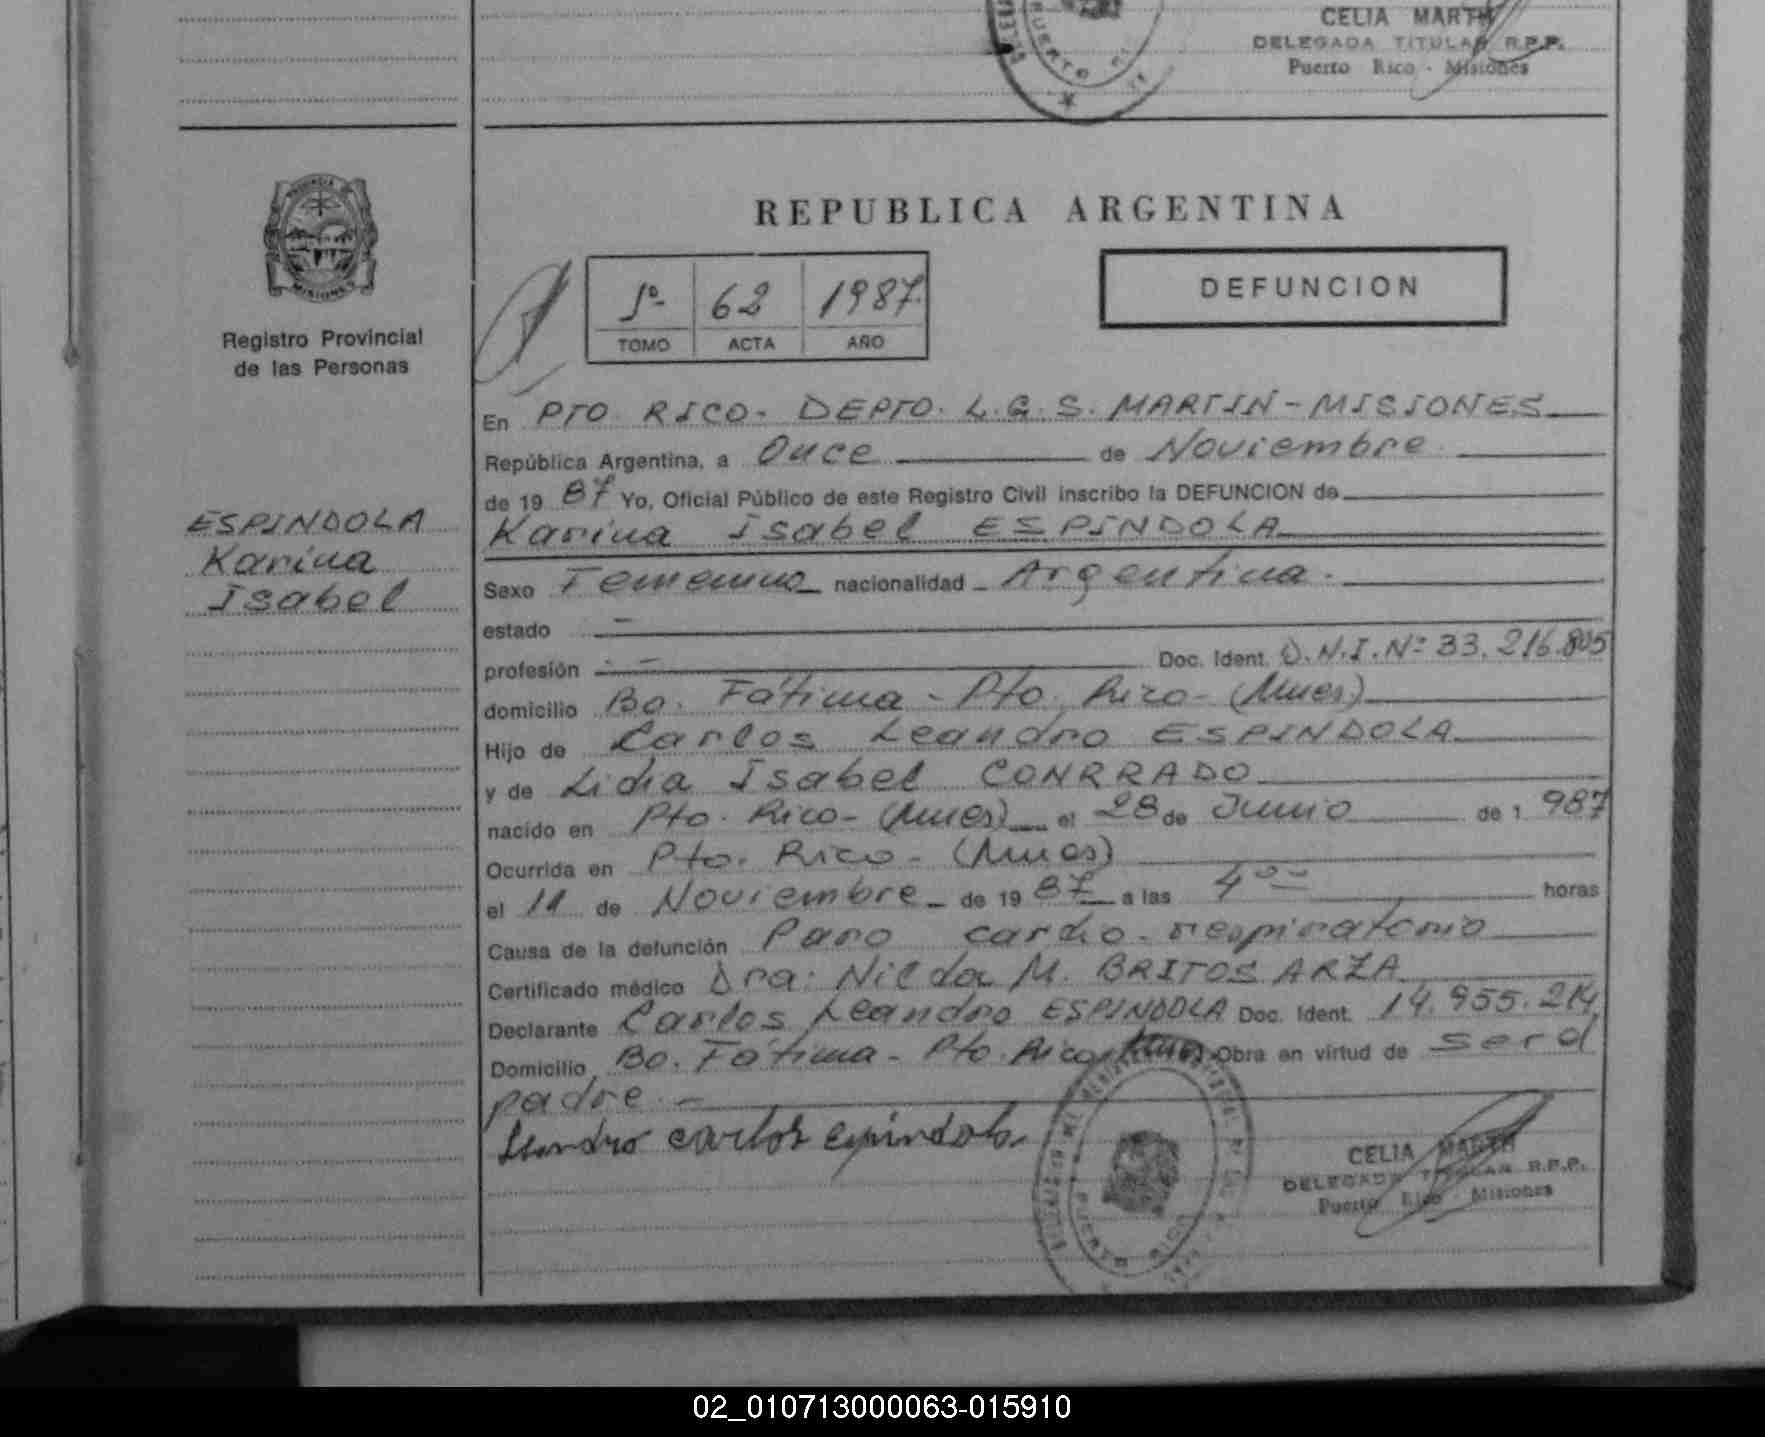 CELIA MARTH
DELEGADA TITULAR R.P.P.
Puerto Rico - Misiones
PUERTO RI
PROVINCIA DE
MISIONES
Registro Provincial
de las Personas
REPUBLICA ARGENTINA
Iº- 62 1987.
TOMO ACTA AÑO
DEFUNCION
En PTO. RICO- DEPTO. L.G.S. MARTIN - MISIONES
República Argentina, a Once de Noviembre
de 19 87 Yo, Oficial Público de este Registro Civil inscribo la DEFUNCION de
Karina Isabel ESPINDOLA
ESPINDOLA
Karina
Isabel
Sexo Femenino nacionalidad - Argentina.
estado -
profesión - - Doc. Ident. D.N.I.Nº 33.216.805
domicilio Bo. Fátima - Pto. Rico - (Mnes)
Hijo de Carlos Leandro ESPINDOLA
y de Lidia Isabel CONRRADO
nacido en Pto. Rico - (Mnes) el 28 de Junio de 1. 987
Ocurrida en Pto. Rico - (Mnes)
el 11 de Noviembre - de 19 87 a las 4 ºº horas
Causa de la defunción Paro cardio-respiratorio
Certificado médico Dra: Nilda M. BRITOS ARZA
Declarante Carlos Leandro ESPINDOLA Doc. Ident. 14.955.214
Domicilio Bo. Fátima - Pto. Rico (Mnes) Obra en virtud de ser el
padre. -
Leandro carlos espindola
PUERTO RICO
CELIA MARTH
DELEGADA TITULAR R.P.P.
Puerto Rico - Misiones
02_010713000063-015910